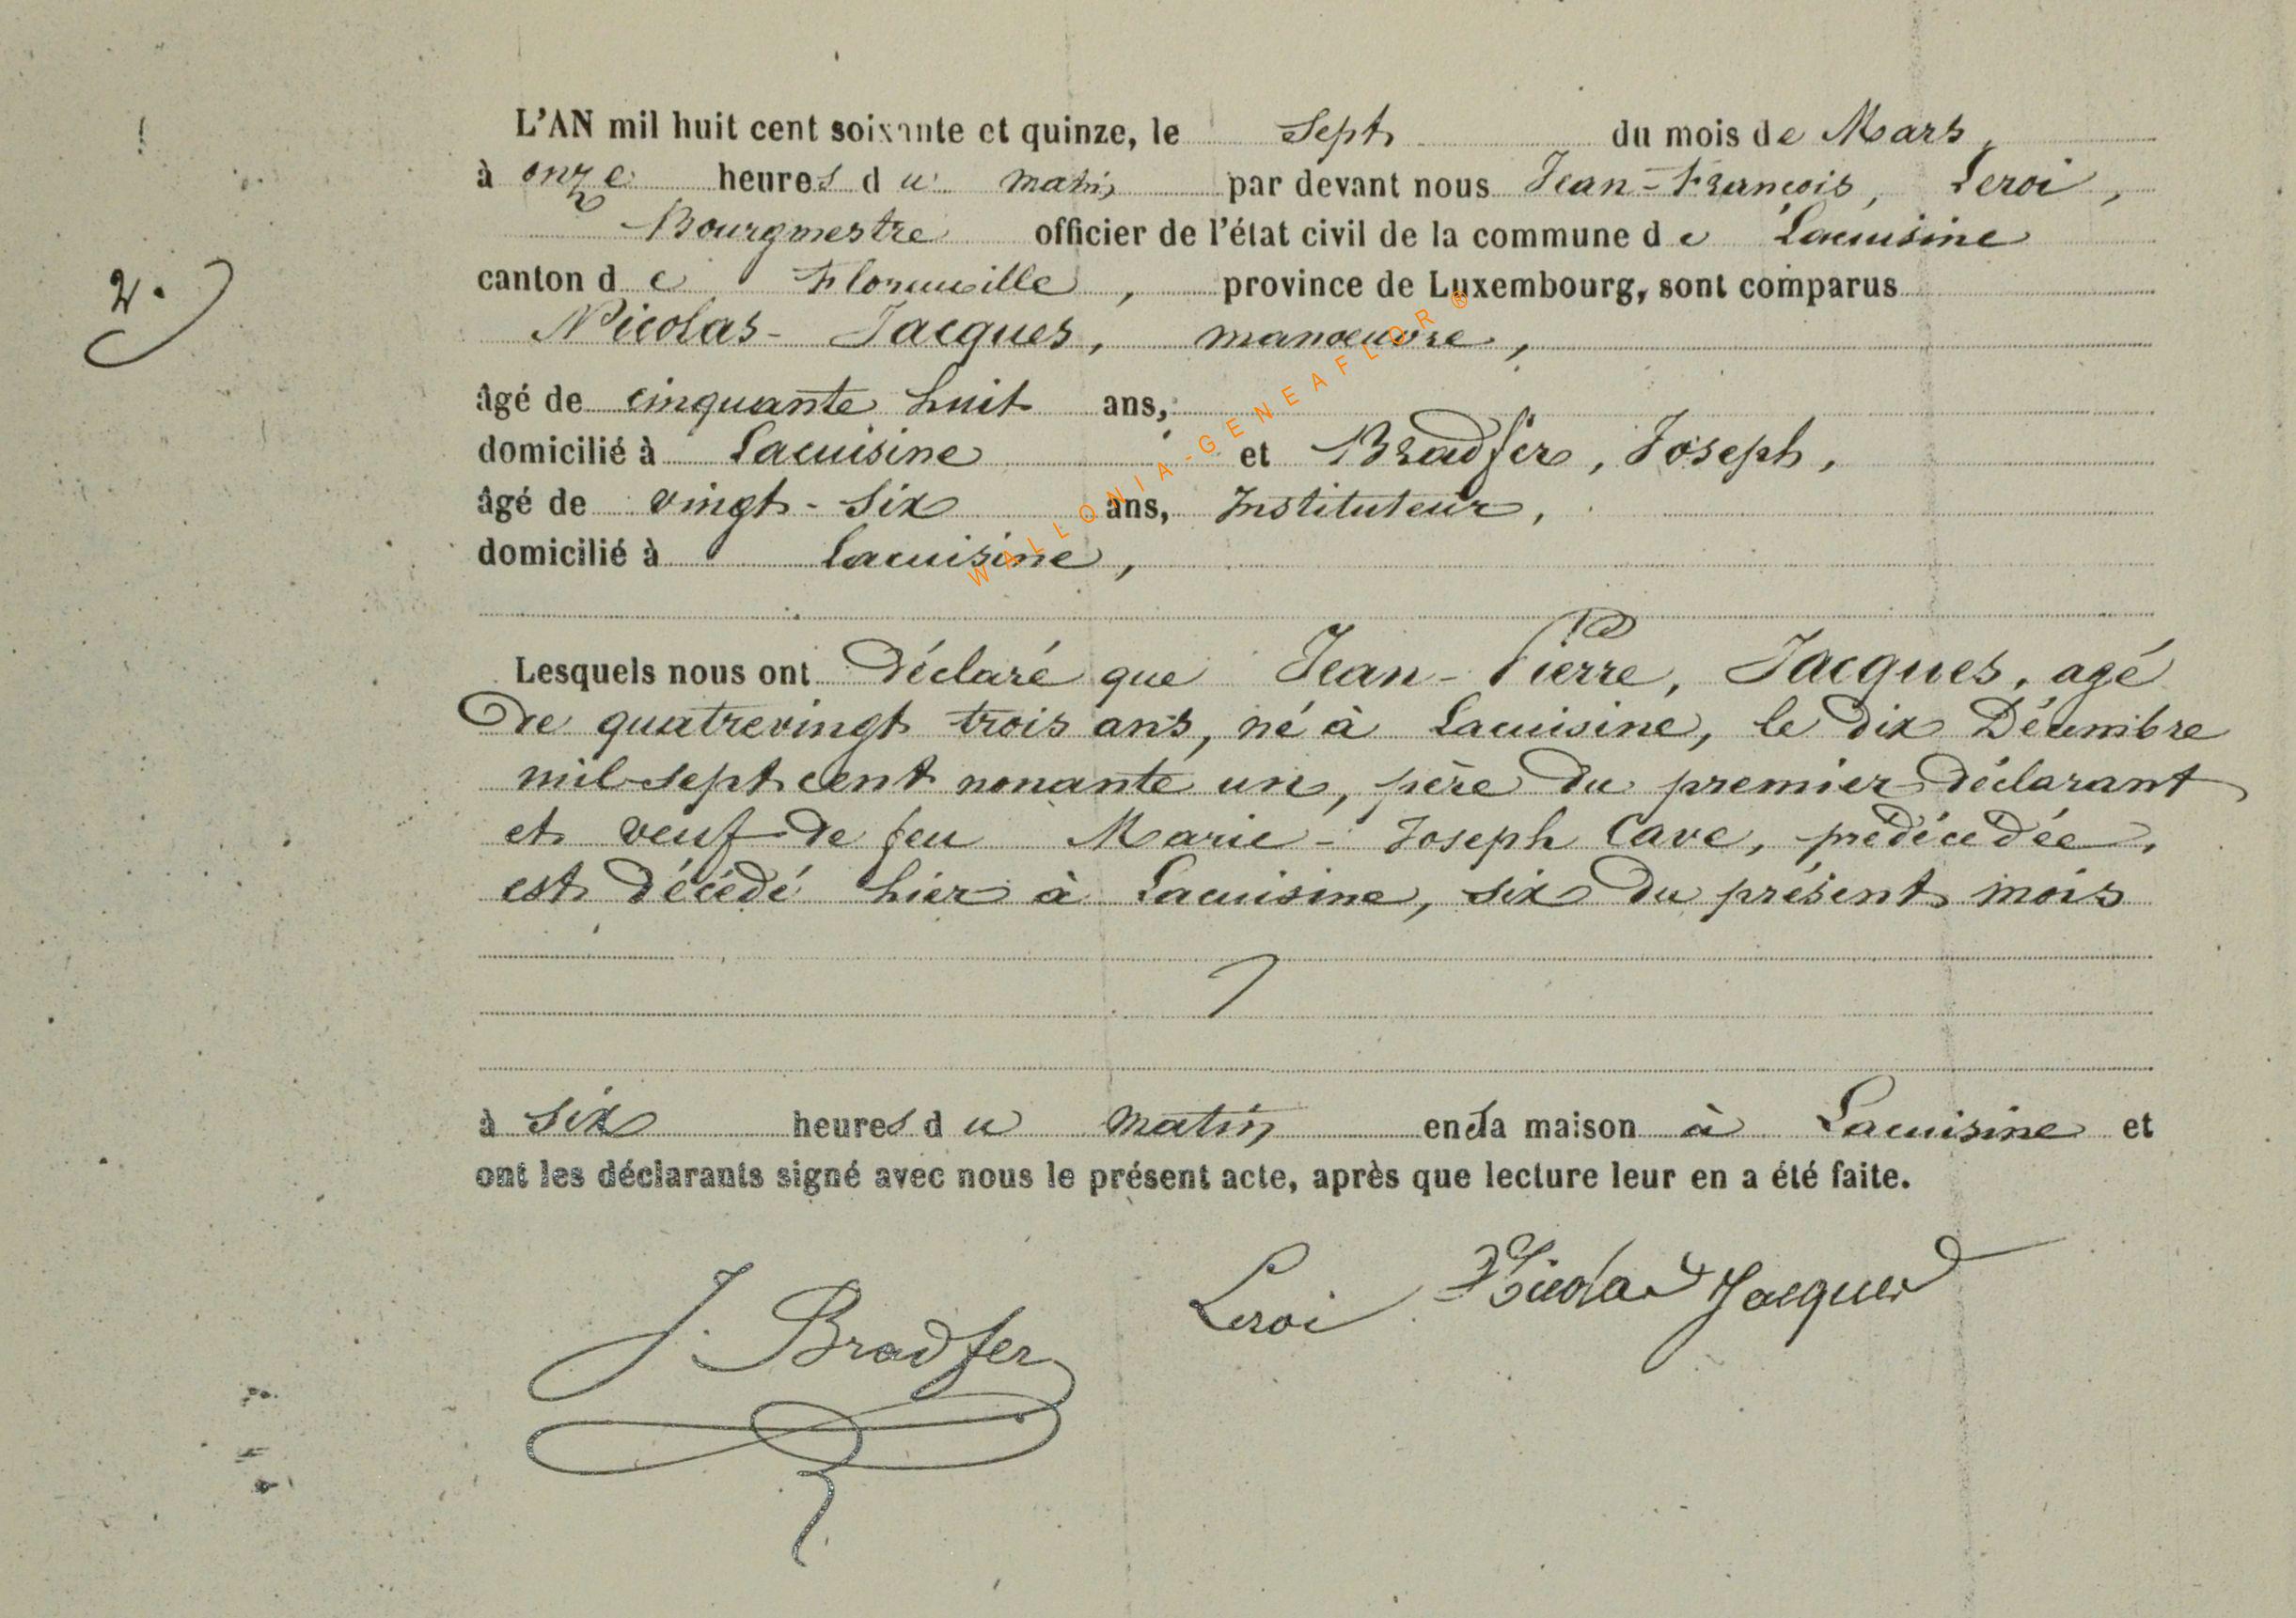 L'AN mil huit cent soixante et quinze, le Sept du mois de Mars,
à onze heures du matin par devant nous Jean-François, Leroi,
Bourgmestre officier de l'état civil de la commune de Lacuisine
canton de Florenville, province de Luxembourg, sont comparus
Nicolas-Jacques, manoeuvre,
âgé de cinquante huit ans,
domicilié à Lacuisine et Bradfer, Joseph,
âgé de vingt-six ans, Instituteur,
domicilié à Lacuisine,
Lesquels nous ont déclaré que Jean-Pierre, Jacques, agé
de quatrevingt trois ans, né à Lacuisine, le dix Décembre
mil sept cent nonante un, père du premier déclarant
et veuf de feu Marie-Joseph Cave, prédécédée,
est décédé hier à Lacuisine, six du présent mois
à six heures du matin en sa maison à Lacuisine et
ont les déclarants signé avec nous le présent acte, après que lecture leur en a été faite.
2.
J. Bradfer
Leroi
Nicolas Jacques
WALLONIA-GENEAFLOR®